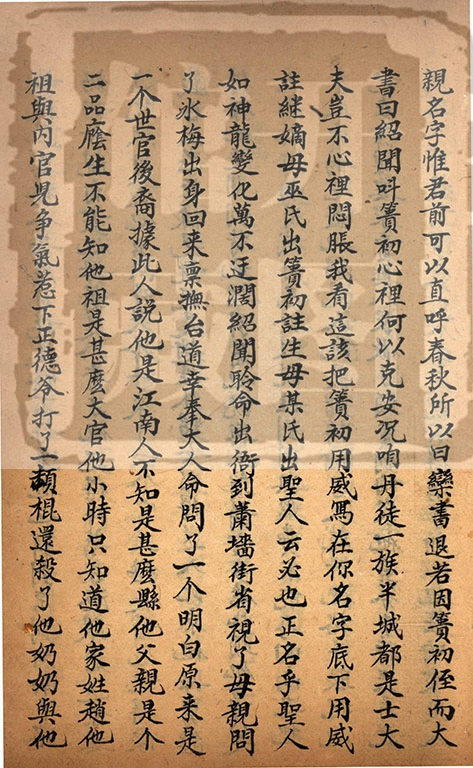 親名字惟君前可以直呼春秋所以曰欒書退若因簣初侄而大
書曰紹聞呌簣初心裡何以克安况咱丹徒一族半城都是士大
夫豈不心裡悶脹我看這該把簣初用威寫在你名字底下用威
註繼嫡母巫氏出簣初註生母某氏出聖人云必也正名乎聖人
如神龍變化萬不迂濶紹聞聆命出衙到蕭墻街省視了母親問
了氷梅出身回来禀撫台道幸奉大人命問了一个明白原来是
一个世官後裔據此人説他是江南人不知是甚麽縣他父親是个
二品廕生不能知他祖是甚麽大官他小時只知道他家姓趙他
祖與内官児争氣惹下正德爷打了一頓棍還殺了他奶奶與他